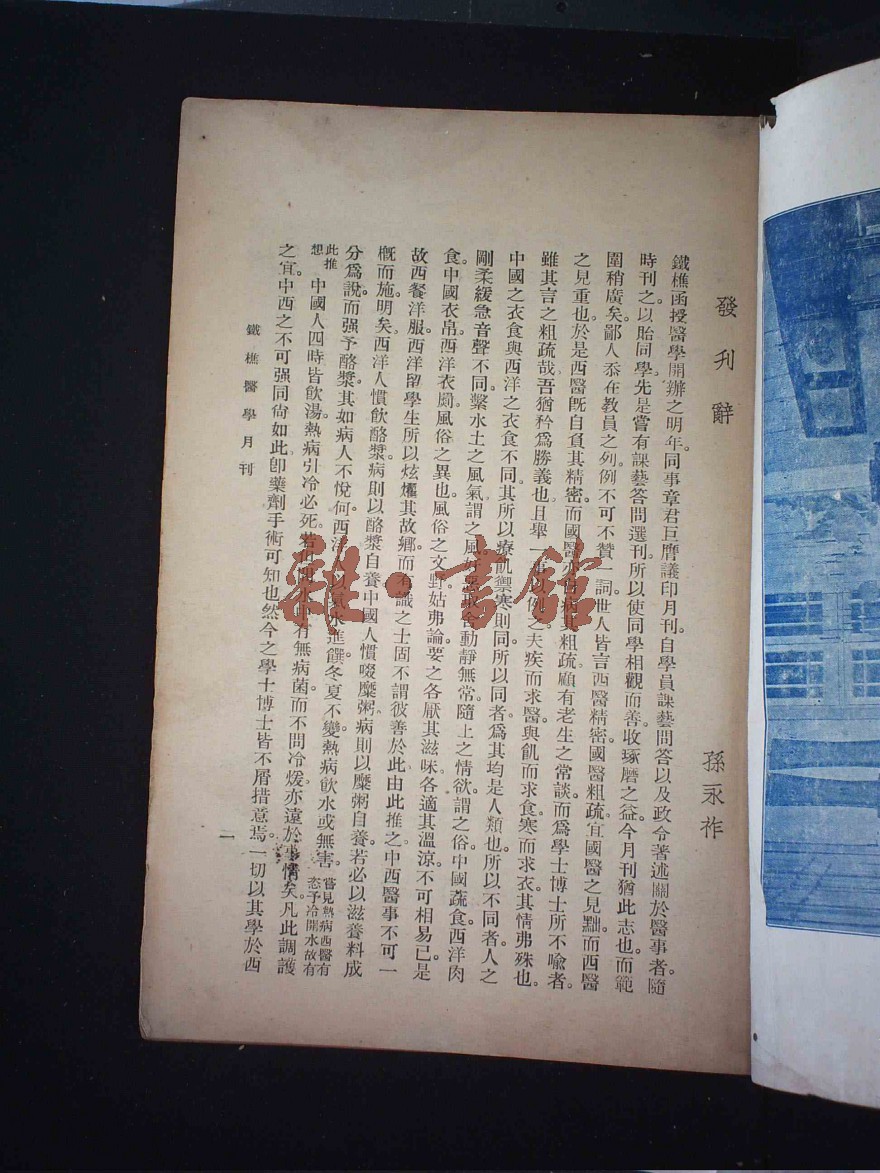 發刊辭
孫永祚
鐵樵函授醫學開辦之明年。同事章君巨膺議印月刊。自學員課藝問答以及政令著述關於醫事者。隨
時刊之以貽同學。先是嘗有課藝答問選刊。所以使同學相觀而善。收琢磨之益。今月刊猶此志也。而範
圍稍廣矣。鄙人忝在教員之列。例不可不贊一詞。世人皆言西醫精密。國醫粗疏。宜國醫之見黜。而西醫
之見重也。於是西醫旣自負其精密。而國醫亦自病其粗疏。顧有老生之常談。而爲學士博士所不喩者。
雖其言之粗疏哉。吾猶矜爲勝義也。且舉一事以例之。夫疾而求醫。與飢而求食。寒而求衣。其情弗殊也。
中國之衣食與西洋之衣食不同。其所以療飢禦寒則同。所以同者。爲其均是人類也。所以不同者。人之
剛柔緩急音聲不同。繫水土之風氣。謂之風。好惡取舍。動靜無常。隨上之情欲。謂之俗。中國蔬食。西洋肉
食。中國衣帛。西洋衣罽。風俗之異也。風俗之文野姑弗論。要之各厭其滋味。各適其溫涼。不可相易已。是
故西餐洋服。西洋留學生所以炫燿其故鄉。而有識之士固不謂彼善於此。由此推之。中西醫事不可一
槪而施。明矣。西洋人慣飲酪漿。病則以酪漿自養。中國人慣啜糜粥。病則以糜粥自養。若必以滋養料成
分爲說。而强予酪漿。其如病人不悅何。西洋人以氣水進饌。冬夏不變。熱病飲水或無害。嘗見熱病西醫有恣予冷開水故有
此推想 中國人四時皆飲湯。熱病引冷必死。若但問水中有無病菌。而不問冷煖。亦遠於事情矣。凡此調護
之宜。中西之不可强同尙如此。卽藥劑手術可知也。然今之學士博士皆不屑措意焉。一切以其學於西
鐵樵醫學月刊
一
雜·書館